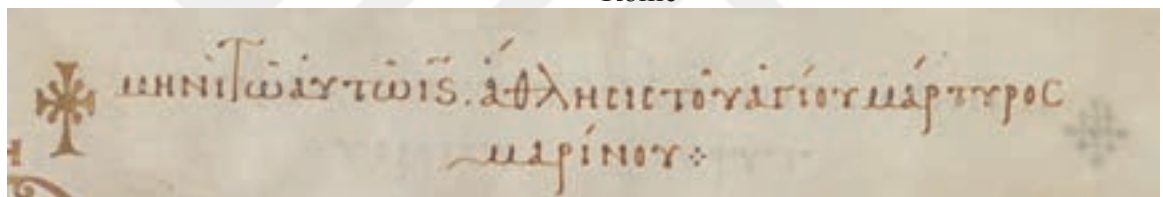 μηνὶ τῶ ἀυτῶ ις. ἄθλησις τοῦ ἁγίου μάρτυρος
μαρίνου⁘